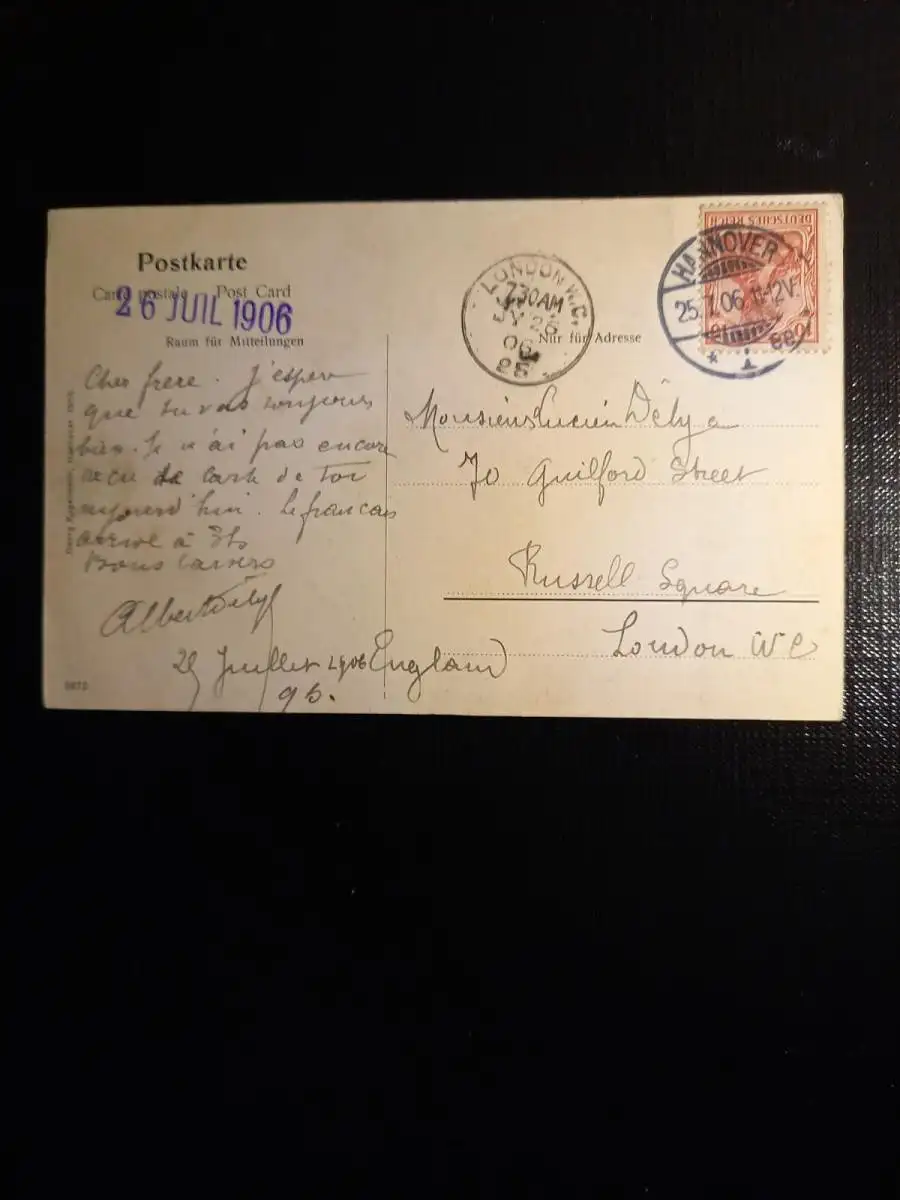 Postkarte
Carte postale Post Card
26 JUIL 1906
Raum für Mitteilungen
Cher frere. J'espere
que tu vas toujours
bien. Je n'ai pas encore
recu de carte de toi
aujourd'hui. Le francais
arrive à
Bons baisers
Albert Dély
25 Juillet 1906
95.
LONDON W.C.
7.30 AM
JY 26
06
Nur für Adresse
DEUTSCHES REICH
HANNOVER
25.7.06.11-12V.
* 1
Monsieur Lucien Dély
70 Guilford Street
Russell Square
London WC
England